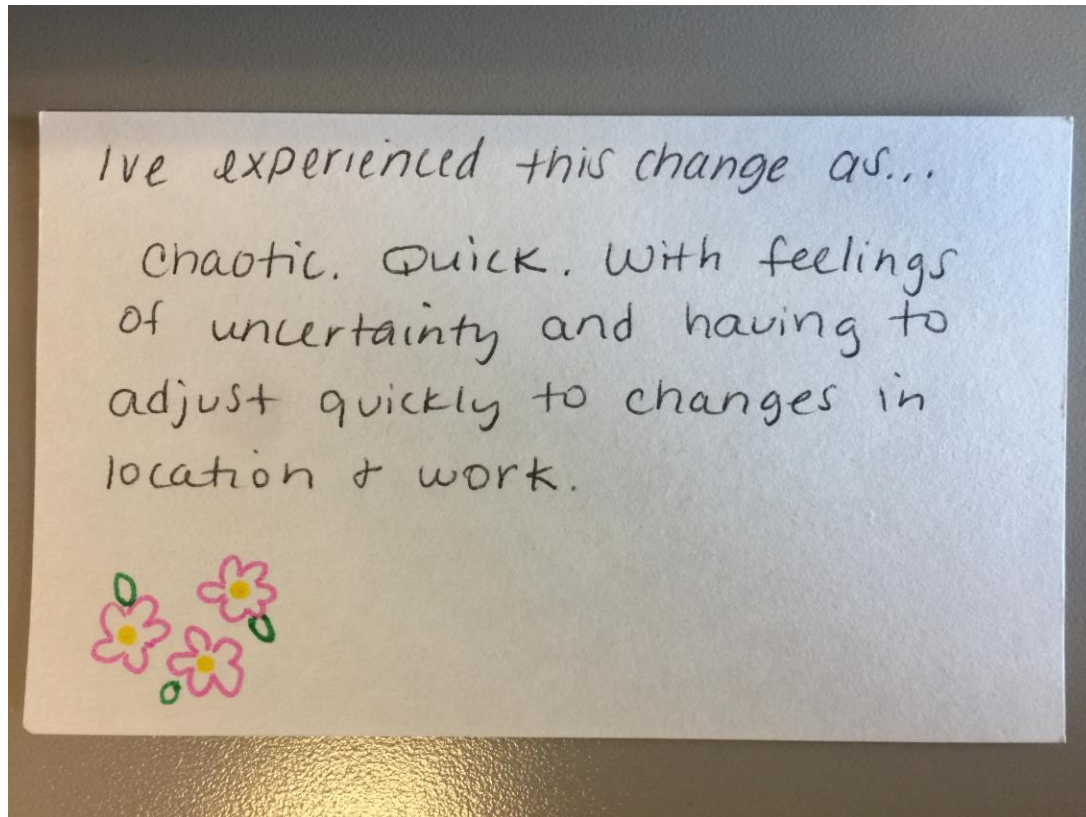 Ive experienced this change as...
Chaotic. Quick. With feelings
of uncertainty and having to
adjust quickly to changes in
location + work.